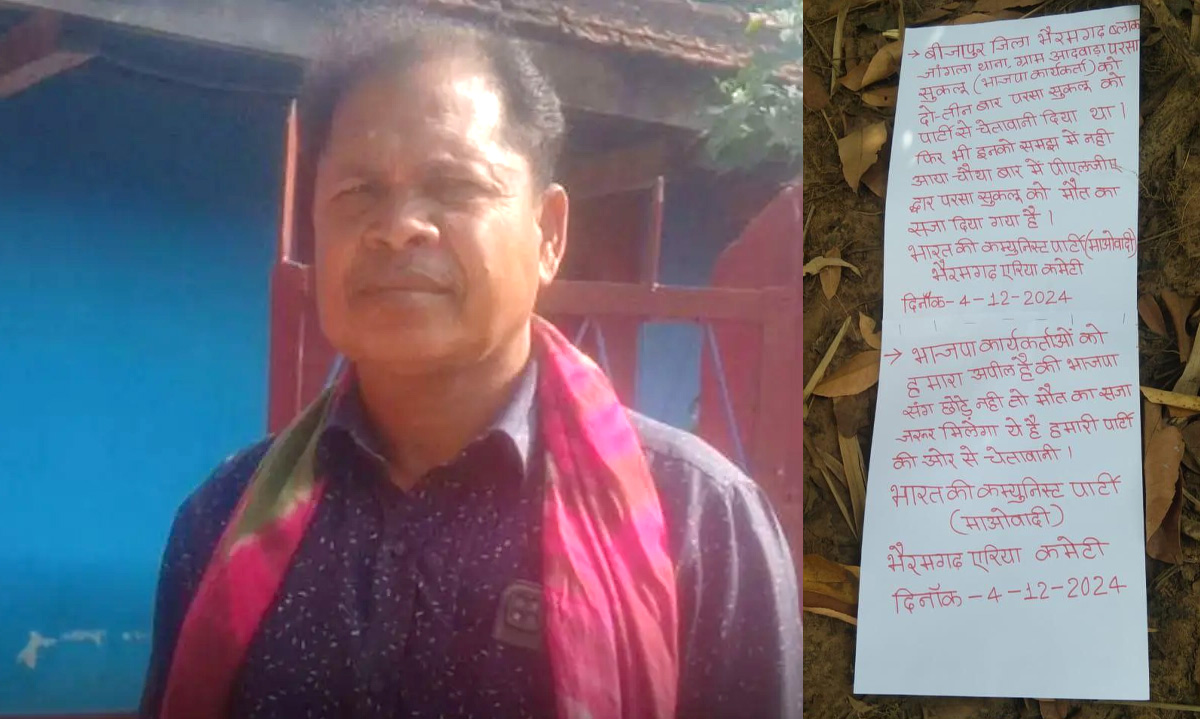 → बीजापुर जिला भैरमगढ़ ब्लाक
जांगला थाना, ग्राम आदवाड़ा परसा
सुकलू (भाजपा कार्यकर्ता) को
दो-तीन बार परसा सुकलू को
पार्टी से चेतावनी दिया था।
फिर भी इनको समझ में नही
आया-चौथा बार में पीएलजीए
द्वार परसा सुकलू को मौत का
सजा दिया गया है।
भारत की कम्युनिस्ट पार्टी (माओवादी)
भैरमगढ़ एरिया कमेटी
दिनाँक-4-12-2024
→ भाजपा कार्यकर्ताओं को
हमारा अपील है की भाजपा
संग छोड़े नही तो मौत का सजा
जरूर मिलेगा ये है हमारी पार्टी
की ओर से चेतावानी।
भारत की कम्युनिस्ट पार्टी
(माओवादी)
भैरमगढ़ एरिया कमेटी
दिनाँक-4-12-2024